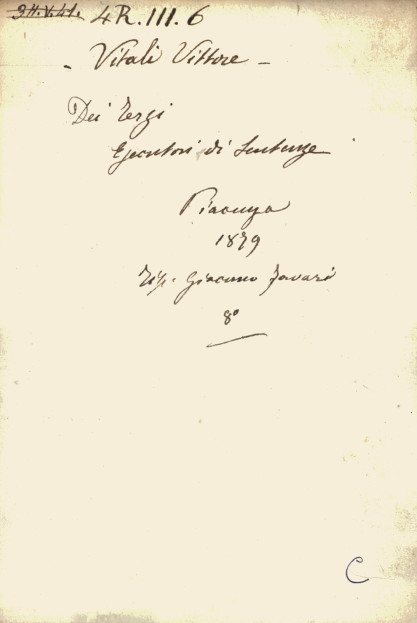 3H.V.41. 4R.III.6
- Vitali Vittore -
Dei Terzi
Esecutori di Sentenze
Piacenza
1879
Tip. Giacomo Favari
8º
C